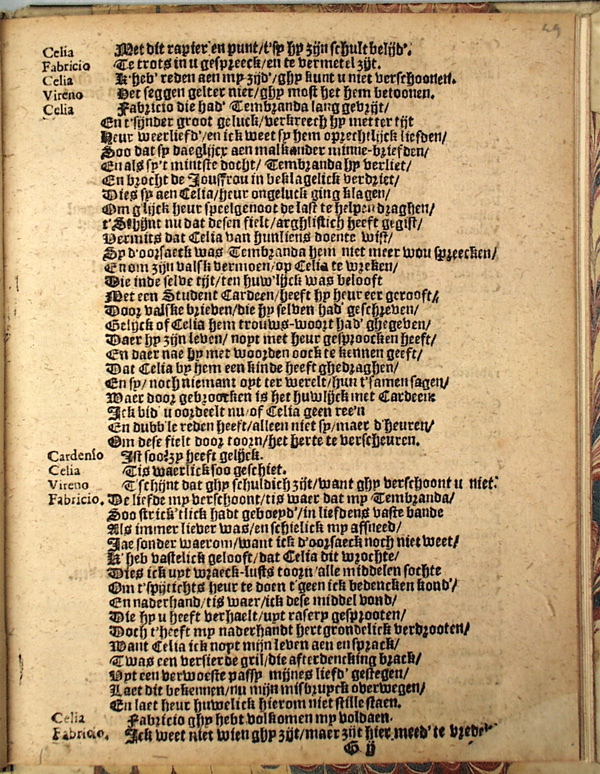 49
Celia Met dit rapier en punt/t'sy hy zijn schult belijd'.
Fabricio Te trots in u gespreeck/en te vermetel zijt.
Celia K'heb' reden aen my zijd'/ghy kunt u niet verschoonen.
Vireno Het seggen gelter niet/ghy most het hem betoonen.
Celia Fabricio die had' Tembranda lang gevrijt/
En t'sijnder groot geluck/verkreech hy metter tijt
Heur weerliefd'/en ick weet sy hem oprechtlijck liefden/
Soo dat sy daeglijcx aen malkander minne-briefden/
En als sy't mintste docht/ Tembranda hy verliet/
En brocht de Jouffrou in beklagelick verdriet/
Dies sy aen Celia/heur ongeluck ging klagen/
Om g'lijck heur speelgenoot de last te helpen draghen/
t'Schijnt nu dat desen fielt/arghlistich heeft gegist/
Vermits dat Celia van hunliens doente wist/
Sy d'oorsaeck was Tembranda hem niet meer wou spreecken/
En om zijn valsk vermoen/op Celia te wreken/
Die inde selve tijt/ten huw'lijck was belooft
Met een Student Cardeen/heeft hy heur eer gerooft/
Door valske brieven/die hy selven had' geschreven/
Gelijck of Celia hem trouws-woort had' ghegeven/
Daer hy zijn leven/ noyt met heur gesproocken heeft/
En daer nae hy met woorden oock te kennen geeft/
Dat Celia by hem een kinde heeft ghedraghen/
En sy/ noch niemant oyt ter werelt/hun t'samen sagen/
Waer door gebroocken is het huwlijck met Cardeen
Ick bid' u oordeelt nu/of Celia geen ree'n
En dubb'le reden heeft/alleen niet sy/maer d'heuren/
Om dese fielt door toorn/het herte te verscheuren.
Cardenio Ist soo? zy heeft gelijck.
Celia Tis waerlick soo geschiet.
Vireno T'schijnt dat ghy schuldich zijt/want ghy verschoont u niet.
Fabricio. De liefde my verschoont/tis waer dat my Tembranda/
Soo strick'tlick hadt geboeyd'/in liefdens vaste bande
Als immer liever was/en schielick my afsneed/
Jae sonder waerom/want ick d'oorsaeck noch niet weet/
K'heb vastelick gelooft/dat Celia dit wrochte/
Dies ick uyt wraeck-lusts toorn/alle middelen sochte
Om t'spijtichts heur te doen t'geen ick bedencken kond'/
En naderhand/tis waer/ick dese middel vond/
Die hy u heeft verhaelt/uyt rasery gesprooten/
Doch t'heeft my naderhandt hert grondelick verdrooten/
Want Celia ick noyt mijn leven aen en sprack/
T'was een versierde gril/die afterdencking brack/
Uyt een verwoeste passy mijnes liefd' gestegen/
Laet dit bekennen/nu mijn misbruyck overwegen/
En laet heur huwelick hierom niet stille staen.
Celia Fabricio ghy hebt volkomen my voldaen.
Fabricio. Ick weet niet wien ghy zijt/maer zijt hier meed' te vreden
G ij